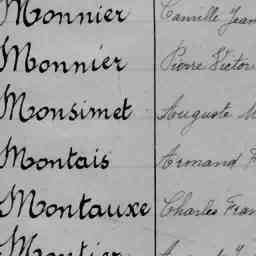 Monnier Camille Jean
Monnier Pierre Victor
Monsimet Auguste
Montais Armand
Montauxe Charles Fran
Montier